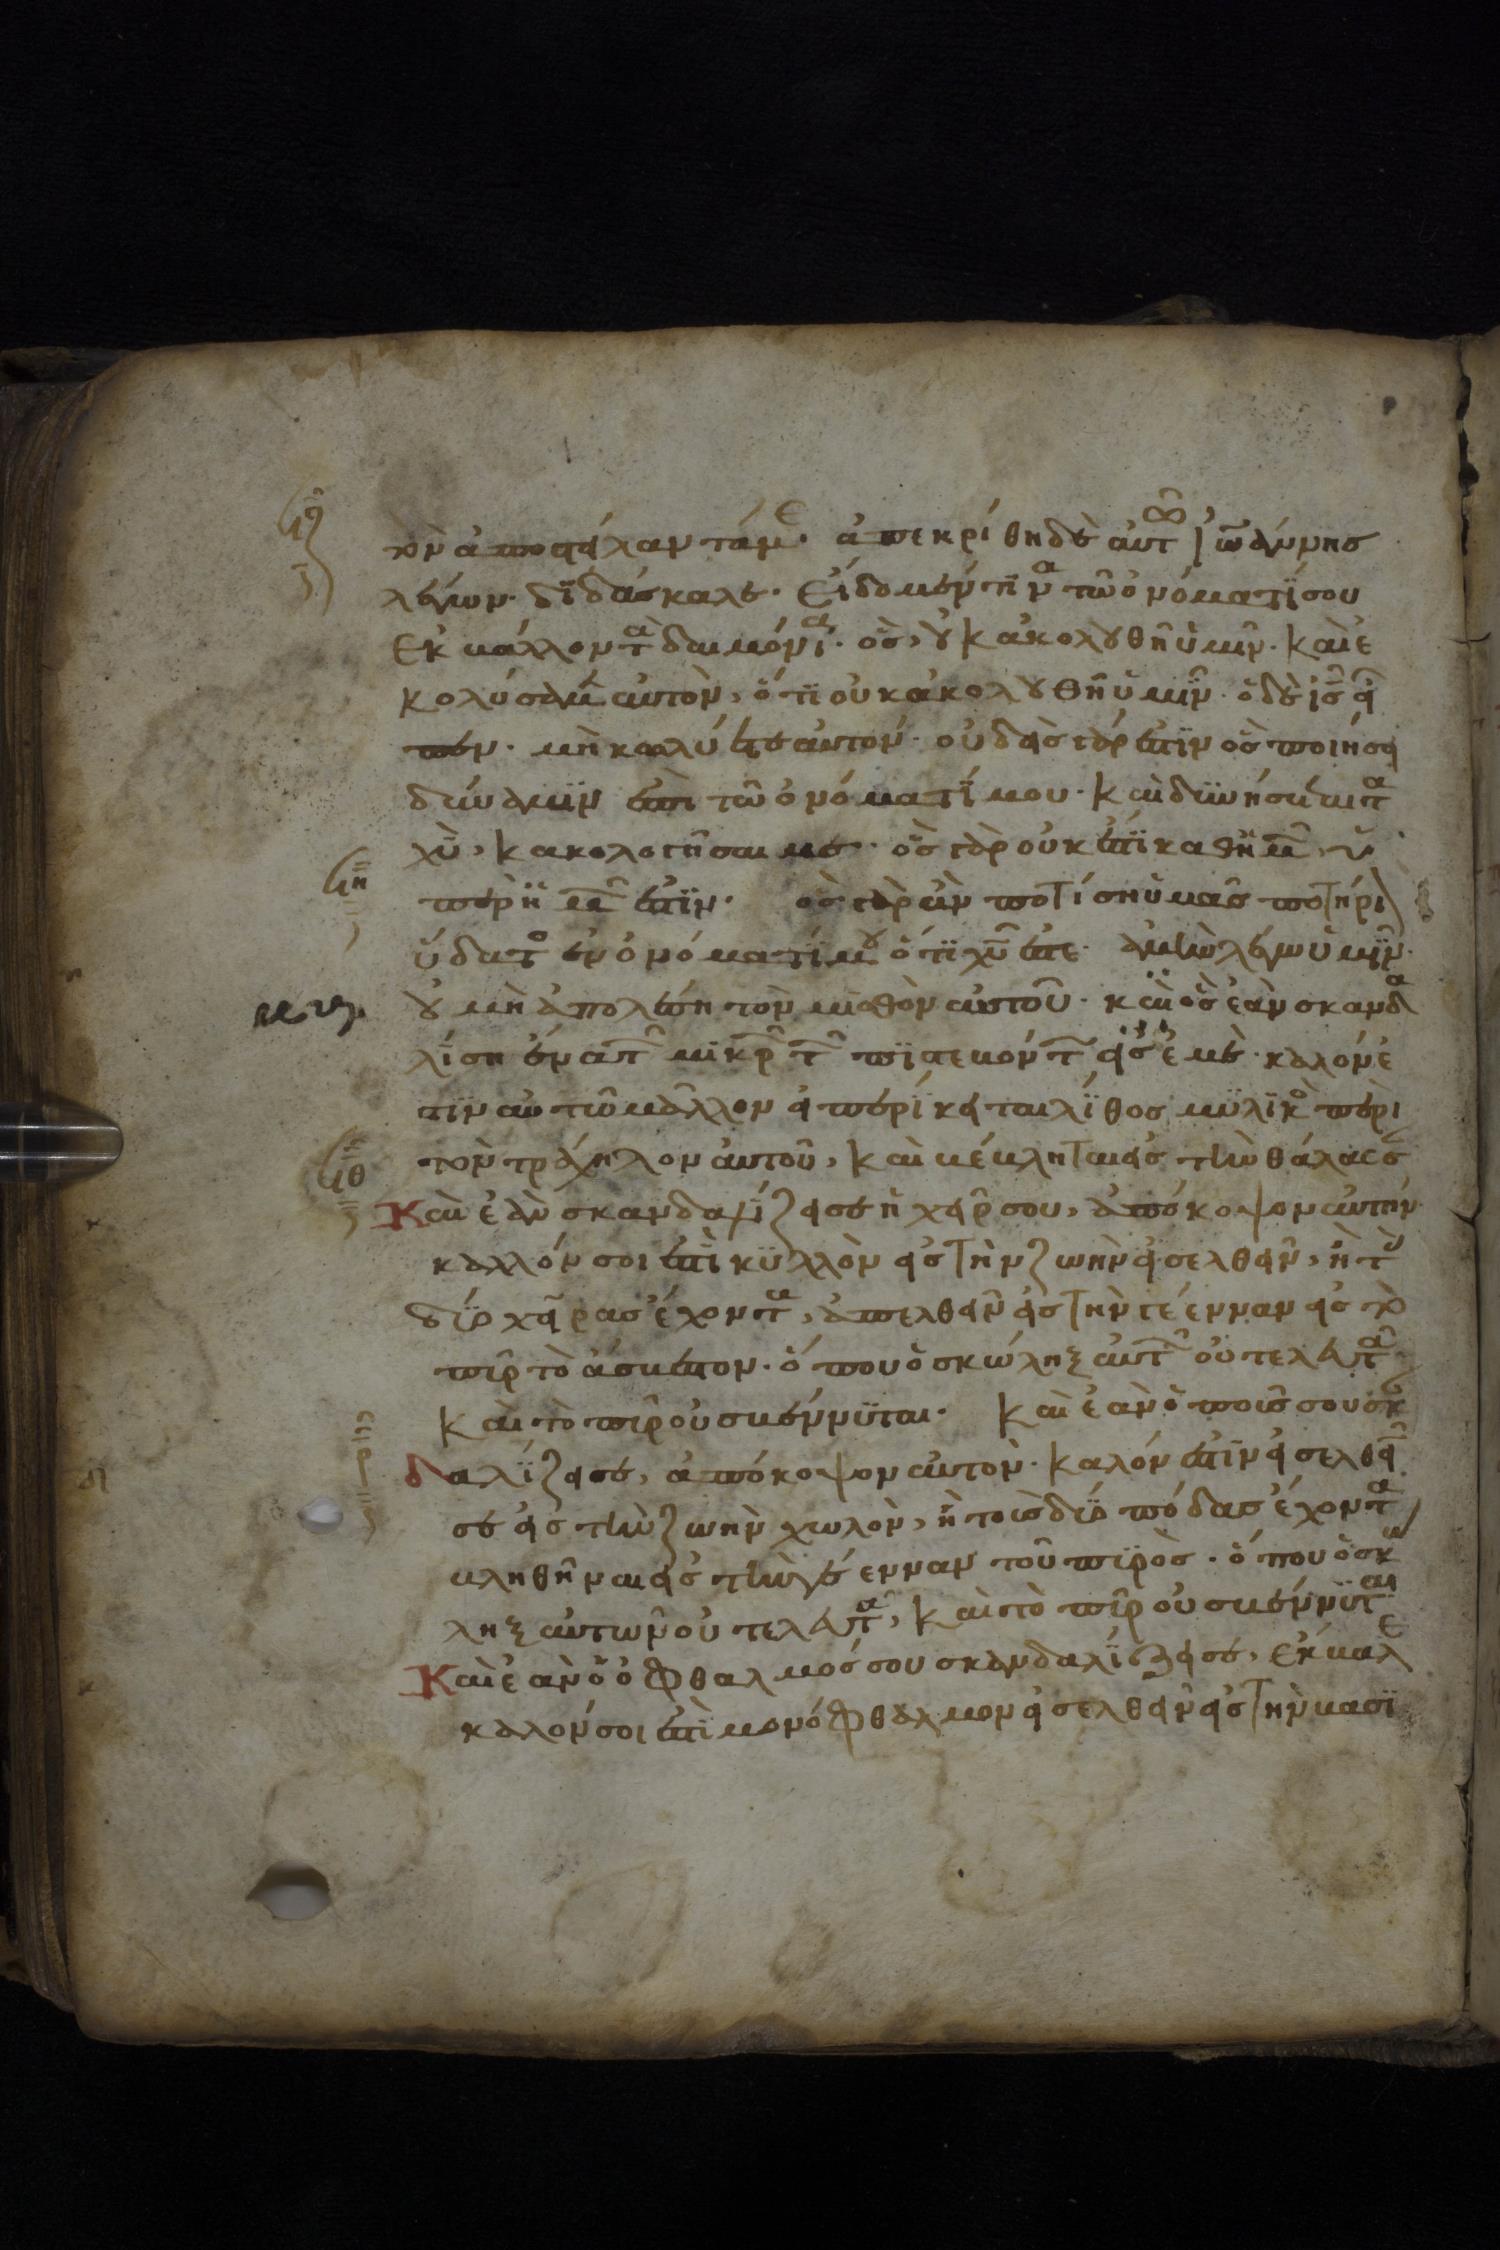 τὸν ἀποστείλαντάμε· ἀπεκρίθη δὲ αὐτῶ ἰωάννησ
λέγων· δϊδάσκαλε· εἴδομέν τϊνα τῶ ὀνόματΐ σου
ἐκβάλλοντα δαιμόνια· ὃσ οὐκ ἀκολουθῆ ὑμῖν· καὶ ἐ
κολύσαμεν αὐτὸν, ὅτϊ οὐκ ἀκολουθῆ ὑμῖν· ὁ δὲ ις εἶ
πεν· μὴ κωλύετε αὐτόν· οὐδεὶσ γάρ ἐστϊν ὃσ ποιήσει
δύναμϊν ἐπὶ τῶ ὀνόματΐ μου· καὶ δϋνήσεται τα
χὺ, κακολογῆσαι με· ὃσ γὰρ οὐκ ἔστϊ καθ ἡμῶν, ὑ
πὲρ ἡμῶν ἐστϊν· ὃσ γὰρ ἂν ποτίση ὑμᾶσ ποτήριον
ὕδατος ἐν ὀνόματΐ μου ὅτϊ χυ ἐστε· ἀμὴν λέγω ὑμῖν·
οὐ μὴ ἀπολέση τὸν μισθὸν αὐτοῦ· καὶ ὃσ ἐὰν σκανδα
λΐση ἕνα τῶν μϊκρῶν τῶν πϊστευόντων εἰσ ἐμὲ· καλόν ἐ
στϊν αὐτῶ μᾶλλον εἰ περΐκειται λΐθοσ μϋλϊκὸς περὶ
τὸν τράχηλον αὐτοῦ, καὶ βέβληται εἰσ τὴν θάλασσαν
Καὶ ἐὰν σκανδαλΐζει σε ἡ χείρ σου, ἀπόκοψον αὐτήν
καλλόν σοι ἐστὶ κϋλλὸν εἰσ τὴν ζωὴν εἰσελθεῖν, ἢ τὰς
δύο χεῖρασ ἔχοντα, ἀπελθεῖν εἰσ τὴν γέενναν εἰσ τὸ
πῦρ τὸ ἄσβεστον· ὅπου ὁ σκώληξ αὐτῶν οὐ τελευτᾶ
καὶ τὸ πῦρ οὐ σβέννϋται· καὶ ἐὰν ὁ ποῦσ σου σκαν
δαλΐζει σε, ἀπόκοψον αὐτὸν· καλόν ἐστϊν εἰσελθεῖν
σε εἰσ τὴν ζωὴν χωλὸν, ἢ τοὺσ δύο πόδασ ἔχοντα
βληθῆναι εἰσ τὴν γέενναν τοῦ πϋρὸσ· ὅπου ὁ σκώ
ληξ αὐτῶν οὐ τελευτᾶ, καὶ τὸ πῦρ οὐ σβέννϋται
Καὶ ἐὰν ὁ ὀφθαλμόσ σου σκανδαλΐζει σε, ἔκβαλε
καλόν σοι ἐστὶ μονόφθαλμον εἰσελθεῖν εἰσ τὴν βασϊ